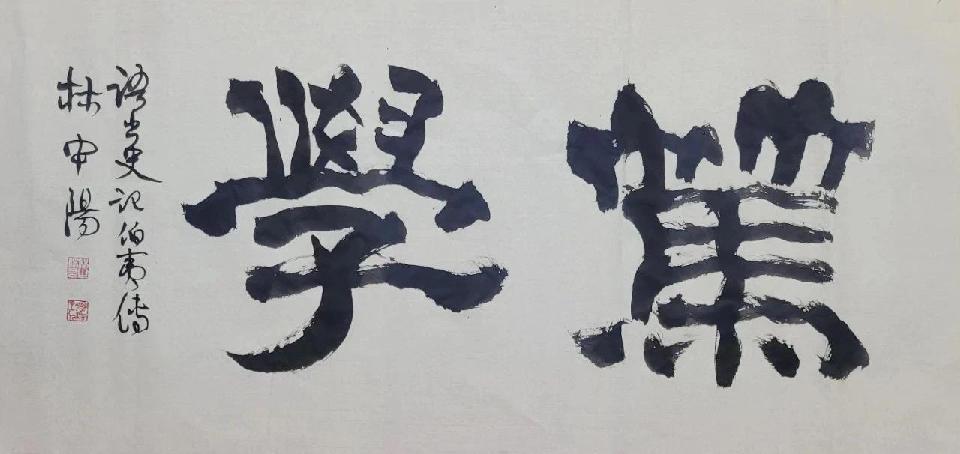 篤學
語出史記伯夷傳
林申陽